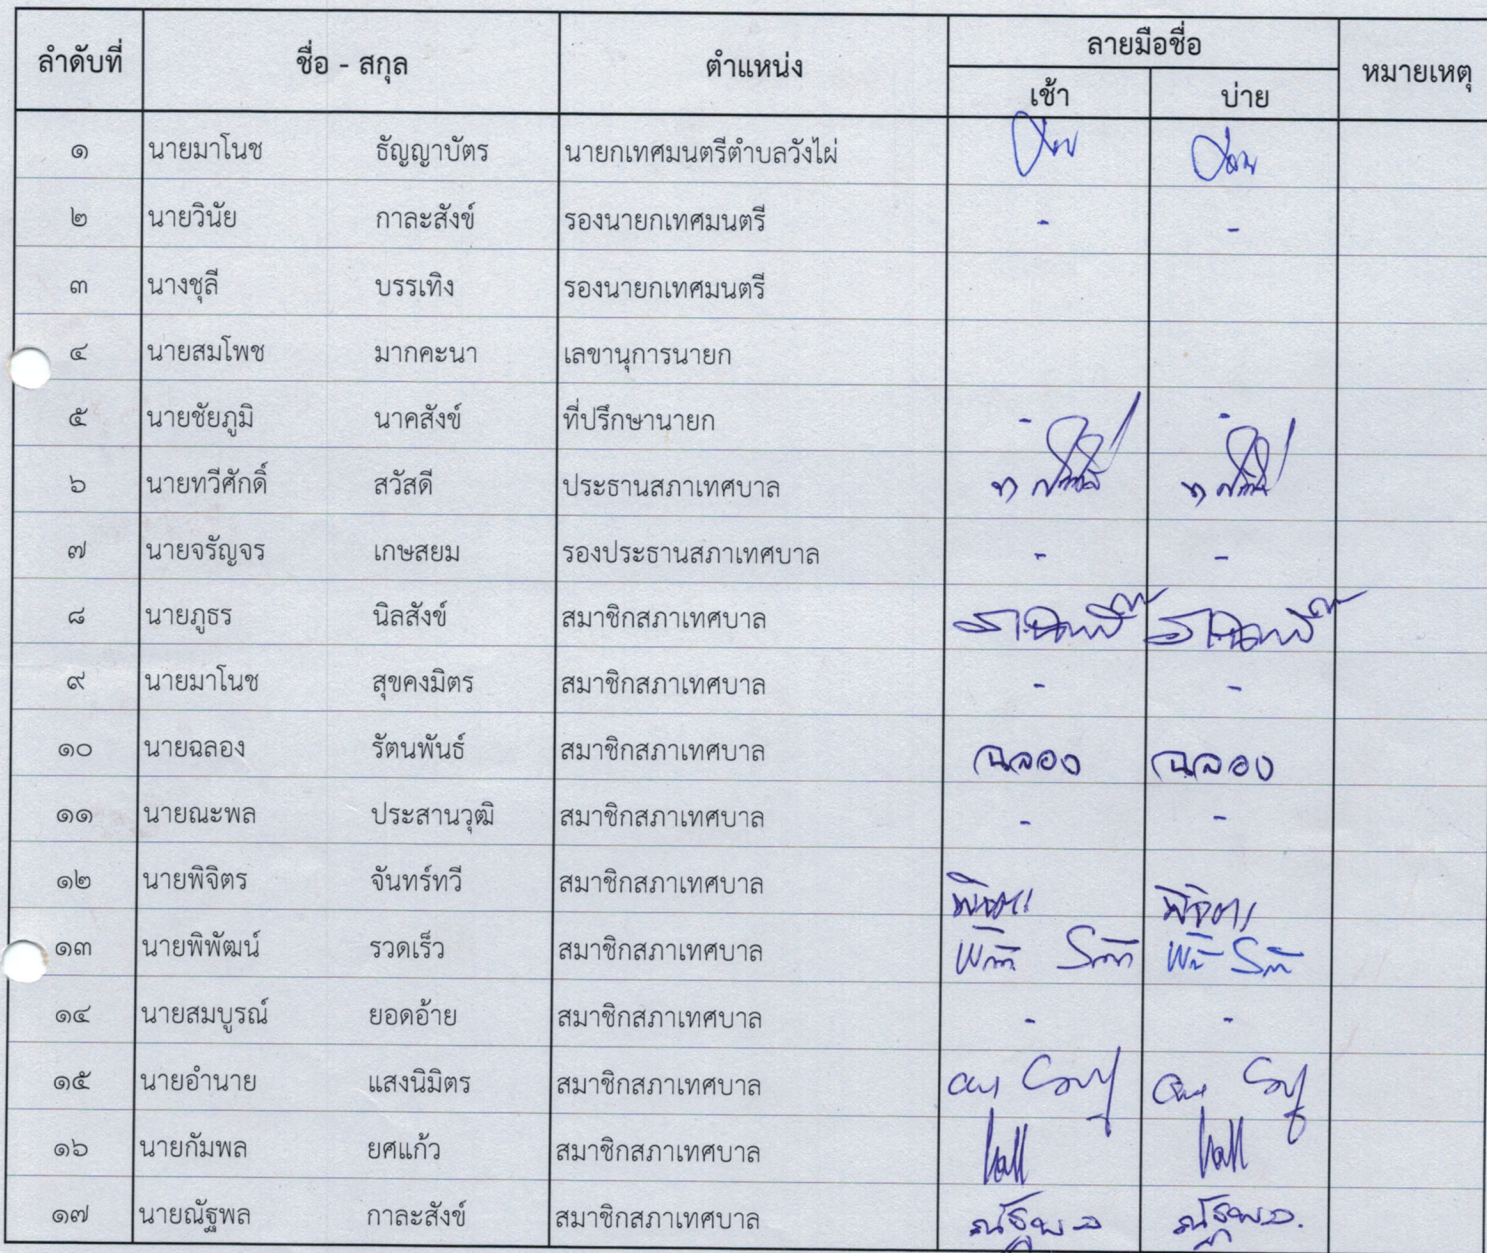 ลำดับที่ ชื่อ - สกุล ตำแหน่ง ลายมือชื่อ หมายเหตุ
เช้า บ่าย
๑ นายมาโนช ธัญญาบัตร นายกเทศมนตรีตำบลวังไผ่
๒ นายวินัย กาละสังข์ รองนายกเทศมนตรี - -
๓ นางชุลี บรรเทิง รองนายกเทศมนตรี
๔ นายสมโพช มากคะนา เลขานุการนายก
๕ นายชัยภูมิ นาคสังข์ ที่ปรึกษานายก - -
๖ นายทวีศักดิ์ สวัสดี ประธานสภาเทศบาล
๗ นายจรัญจร เกษสยม รองประธานสภาเทศบาล - -
๘ นายภูธร นิลสังข์ สมาชิกสภาเทศบาล
๙ นายมาโนช สุขคงมิตร สมาชิกสภาเทศบาล - -
๑๐ นายฉลอง รัตนพันธ์ สมาชิกสภาเทศบาล ฉลอง ฉลอง
๑๑ นายณะพล ประสานวุฒิ สมาชิกสภาเทศบาล - -
๑๒ นายพิจิตร จันทร์ทวี สมาชิกสภาเทศบาล พิจิตร พิจิตร
๑๓ นายพิพัฒน์ รวดเร็ว สมาชิกสภาเทศบาล
๑๔ นายสมบูรณ์ ยอดอ้าย สมาชิกสภาเทศบาล - -
๑๕ นายอำนาย แสงนิมิตร สมาชิกสภาเทศบาล
๑๖ นายกัมพล ยศแก้ว สมาชิกสภาเทศบาล
๑๗ นายณัฐพล กาละสังข์ สมาชิกสภาเทศบาล ณัฐพล ณัฐพล.